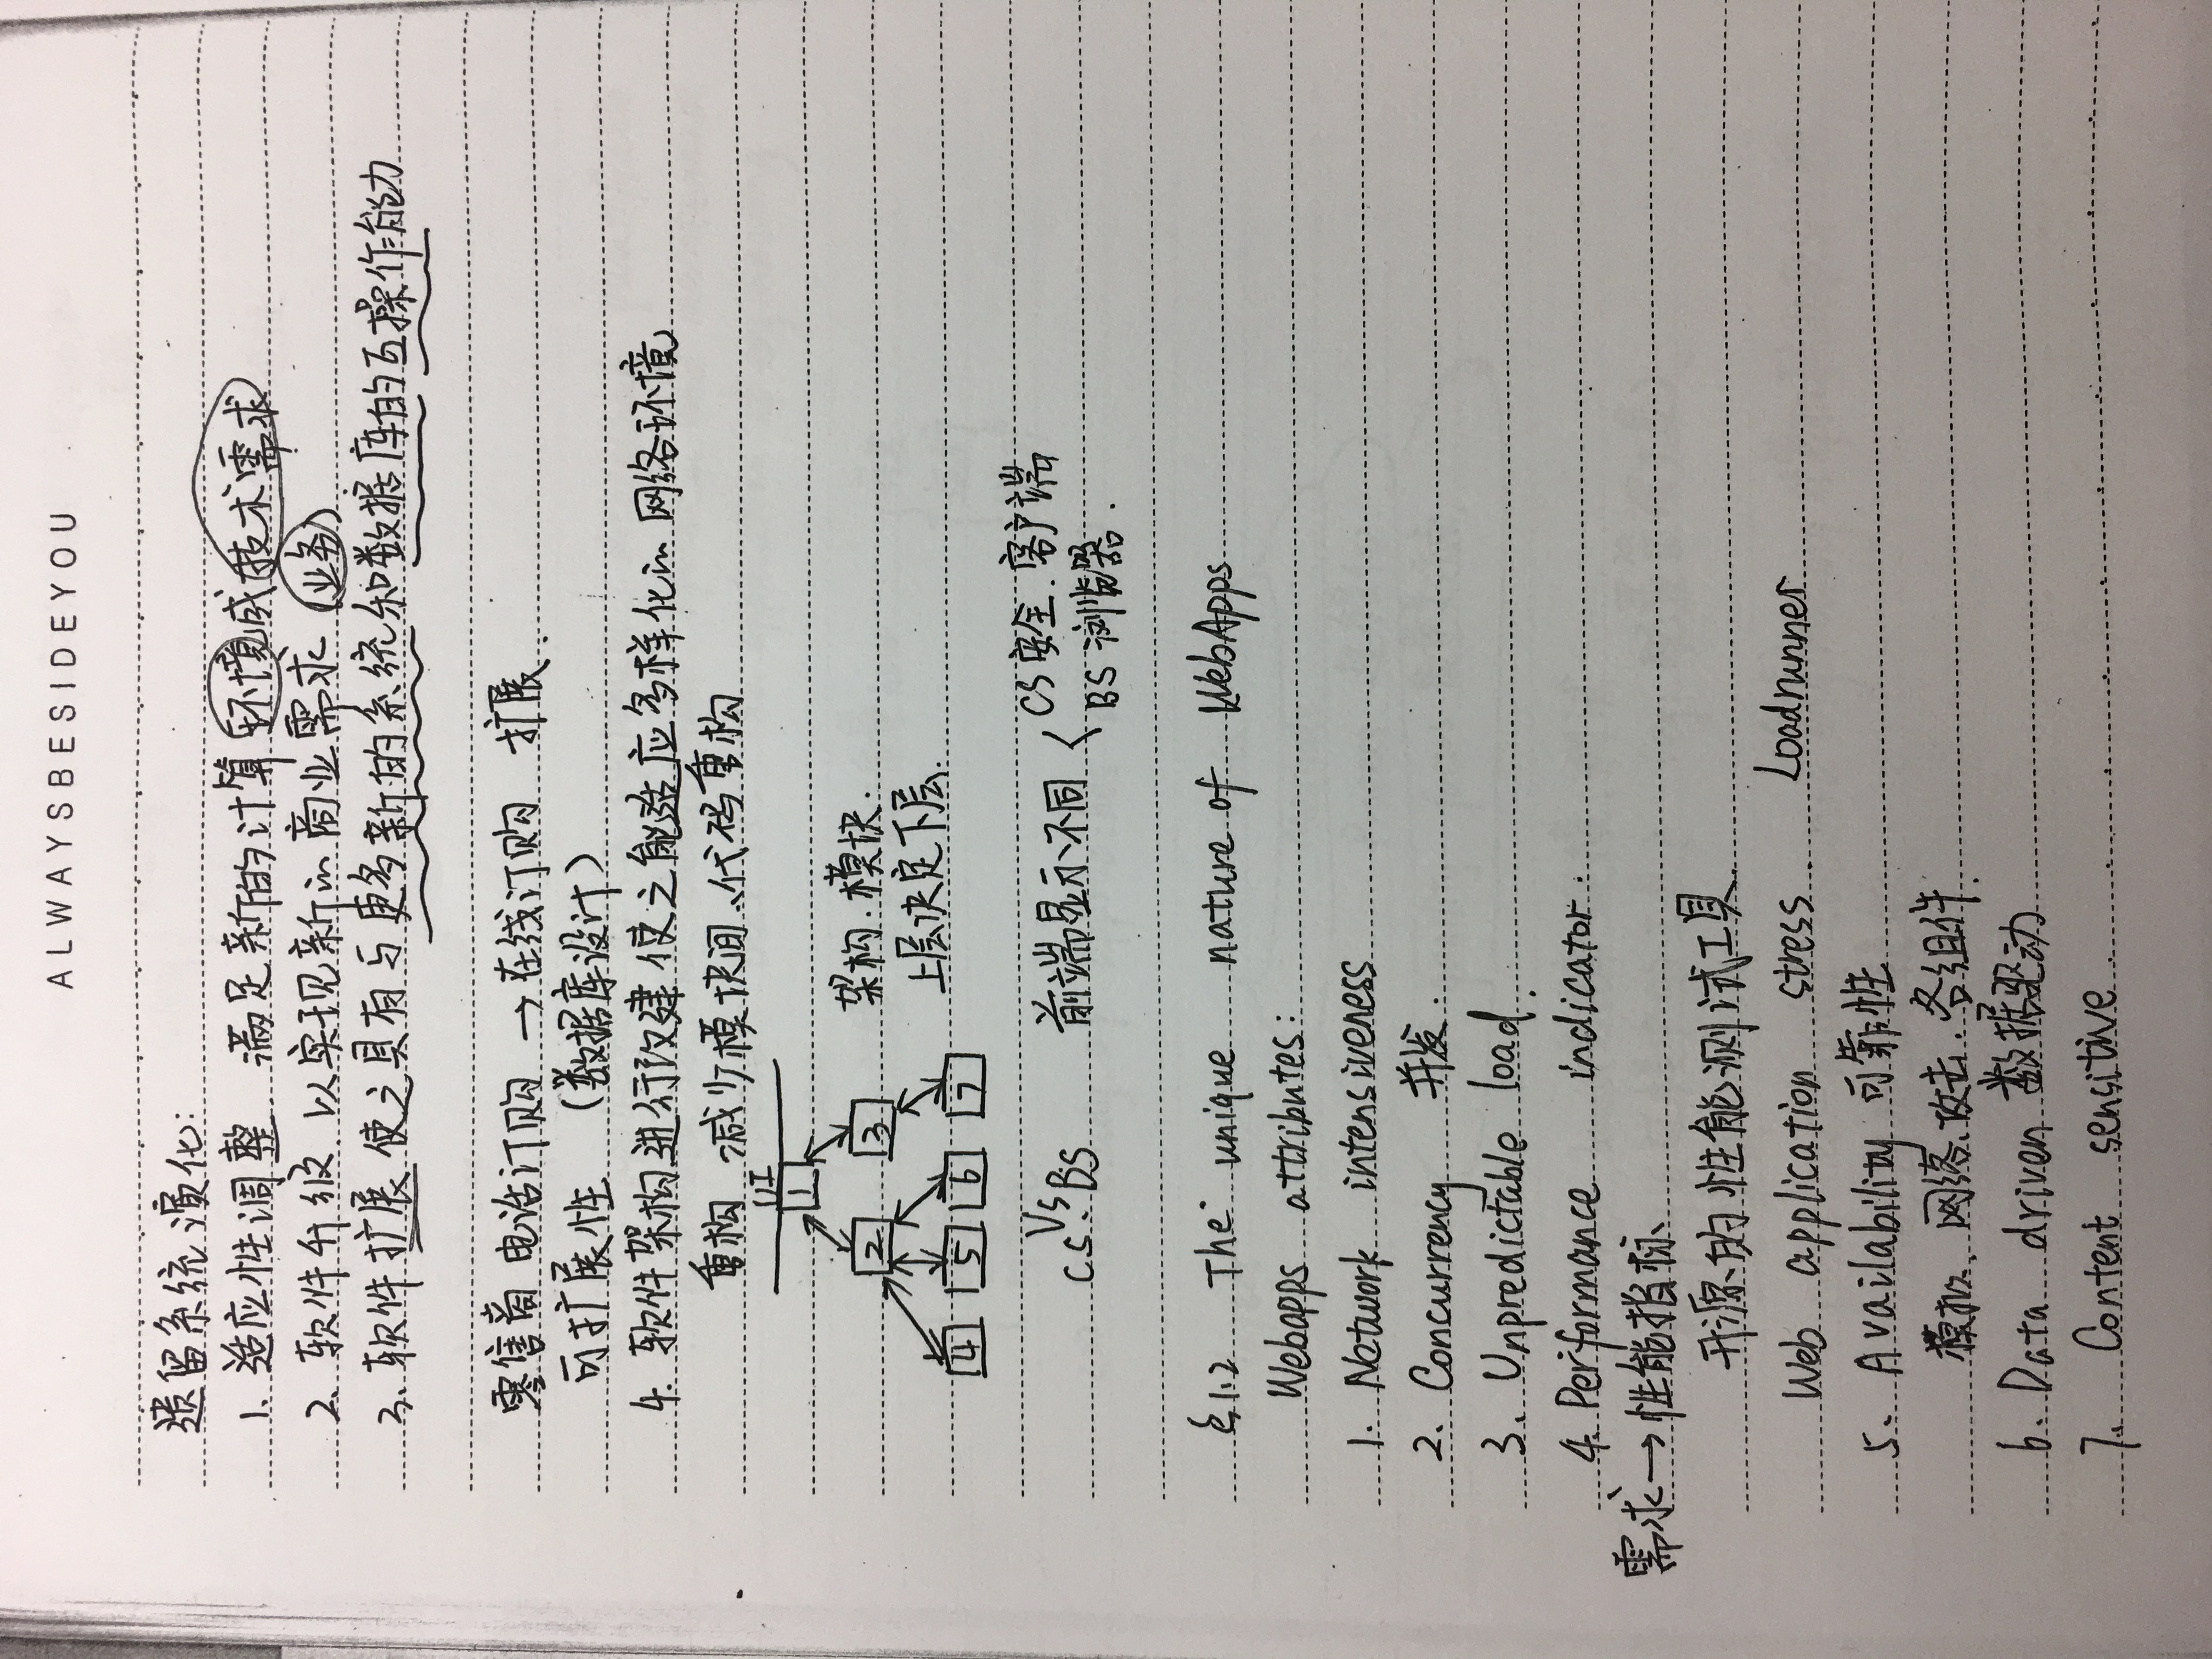 ALWAYSBESIDEYOU
遗留系统演化:
1. 适应性调整 满足新的计算环境或技术需求
2. 软件升级. 以实现新的商业需求 (业务)
3. 软件扩展 使之具有与更多新的系统和数据库的互操作能力
零售商 电话订购 → 在线订购 扩展.
可扩展性 (数据库设计)
4. 软件架构进行改建 使之能适应多样化的网络环境
重构 减少模块间、代码重构
UI
1
2 3
架构. 模块.
上层决定下层.
4 5 6 7
CS VS BS 前端显示不同 < CS 安全. 客户端
BS 浏览器.
§1.2 The unique nature of WebApps
Webapps attributes:
1. Network intensiveness
2. Concurrency 并发.
3. Unpredictable load.
4. Performance indicator.
需求 → 性能指标、
开源的性能测试工具.
Web application stress. Loadrunner
5. Availability 可靠性
模拟、网络、攻击. 各组件.
6. Data driven 数据驱动
7. Content sensitive